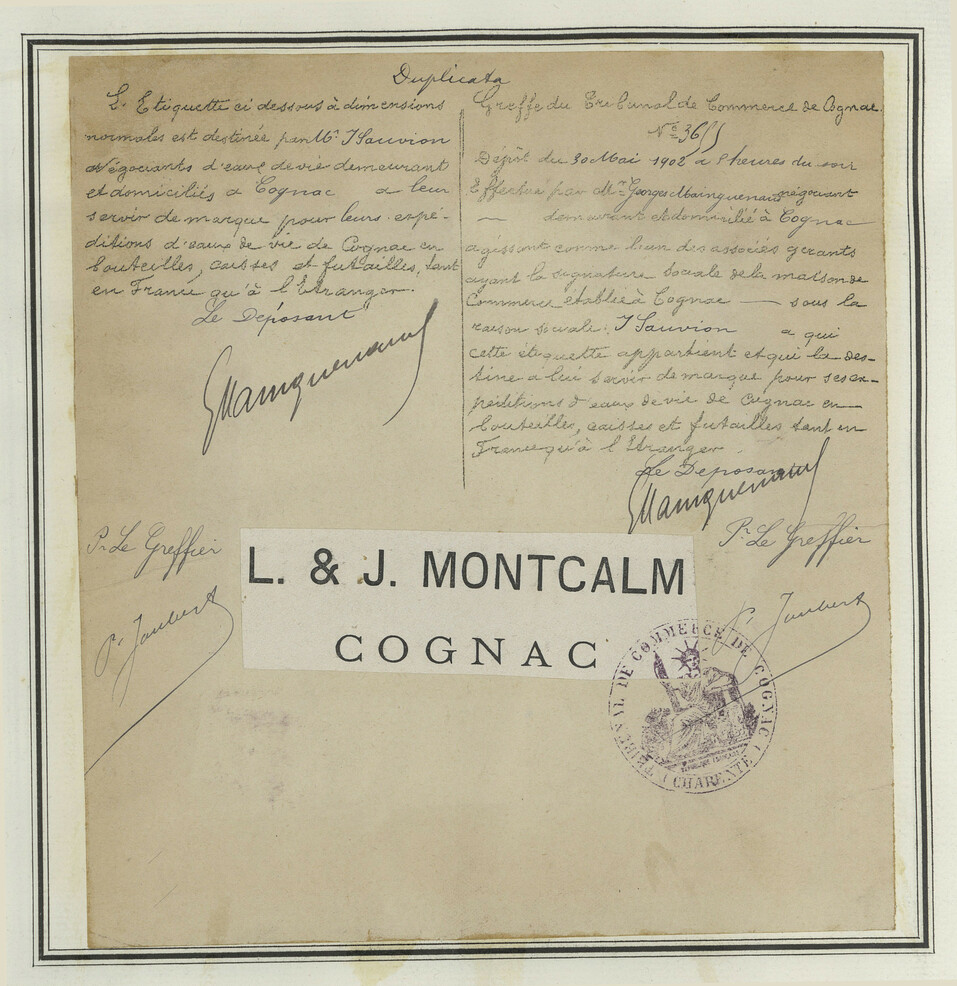 Duplicata
L'Etiquette ci dessous à dimensions
normales est destinée par Mr. J Sauvion
négociants d'eaux de vie demeurant
et domiciliés à Cognac a leur
servir de marque pour leurs expé-
ditions d'eaux de vie de Cognac en
bouteilles, caisses et futailles, tant
en France qu'à l'Etranger.
Le Déposant
GMainguenaud
Pr Le Greffier
Pr Joubert
Greffe du Tribunal de Commerce de Cognac
No
Dépôt du 30 Mai 1902 a heures du soir
Effectué par Mr. Georges Mainguenaud négociant
— demeurant et domicilié à Cognac
agissant comme l'un des associés gerants
ayant la signature sociale de la maison de
Commerce établie à Cognac — sous la
raison sociale: J Sauvion a qui
cette étiquette appartient et qui la des-
tine à lui servir de marque pour ses ex-
péditions d'eaux de vie de Cognac en
bouteilles, caisses et futailles tant en
France qu'à l'Etranger
Le Déposant
GMainguenaud
Pr Le Greffier
Pr Joubert
L. & J. MONTCALM
COGNAC
TRIBUNAL DE COMMERCE DE COGNAC
(CHARENTE)
REPUBLIQUE FRANÇAISE